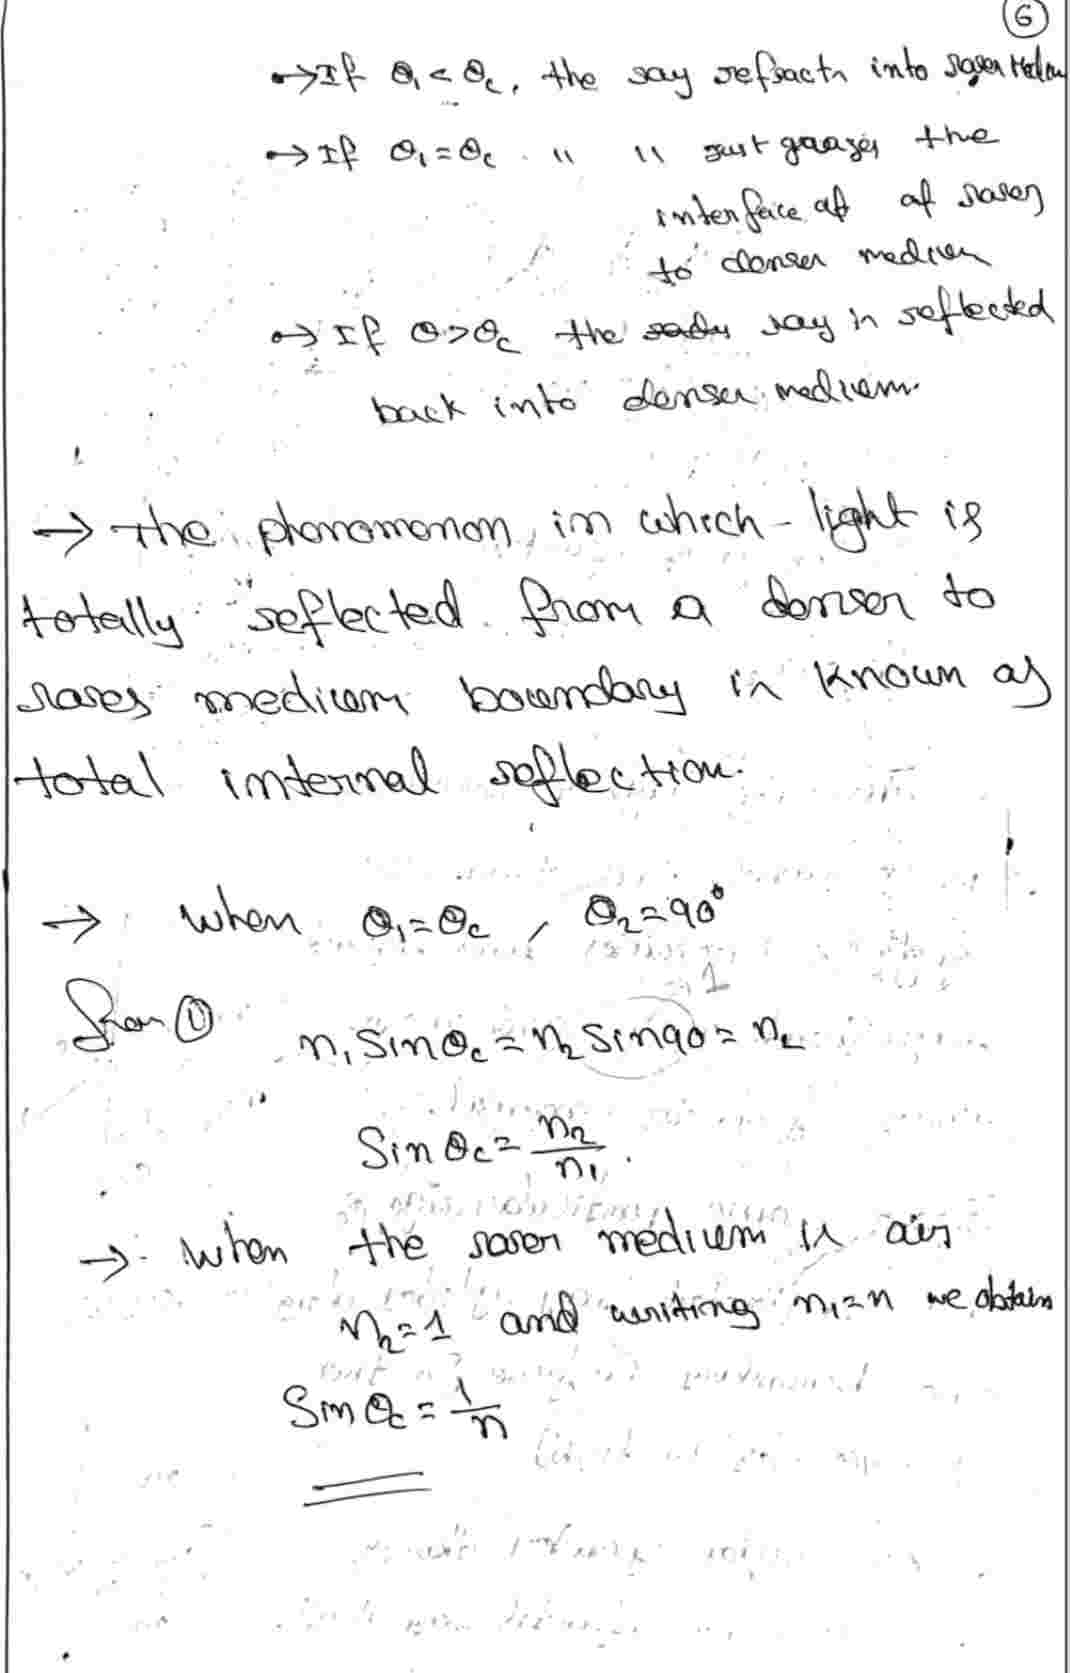 6
→ If θ₁ < θc, the ray refracts into rarer medium
→ If θ₁ = θc " " just grazes the
interface of of rarer
to denser medium
→ If θ > θc the ray is reflected
back into denser medium.
→ The phenomenon in which light is
totally reflected from a denser to
rarer medium boundary is known as
total internal reflection.
→ when θ₁ = θc, θ₂ = 90°
From ①
1
n₁ Sin θc = n₂ Sin 90 = n₂
Sin θc = n₂/n₁.
→ When the rarer medium is air
n₂ = 1 and writing n₁ = n we obtain
Sin θc = 1/n